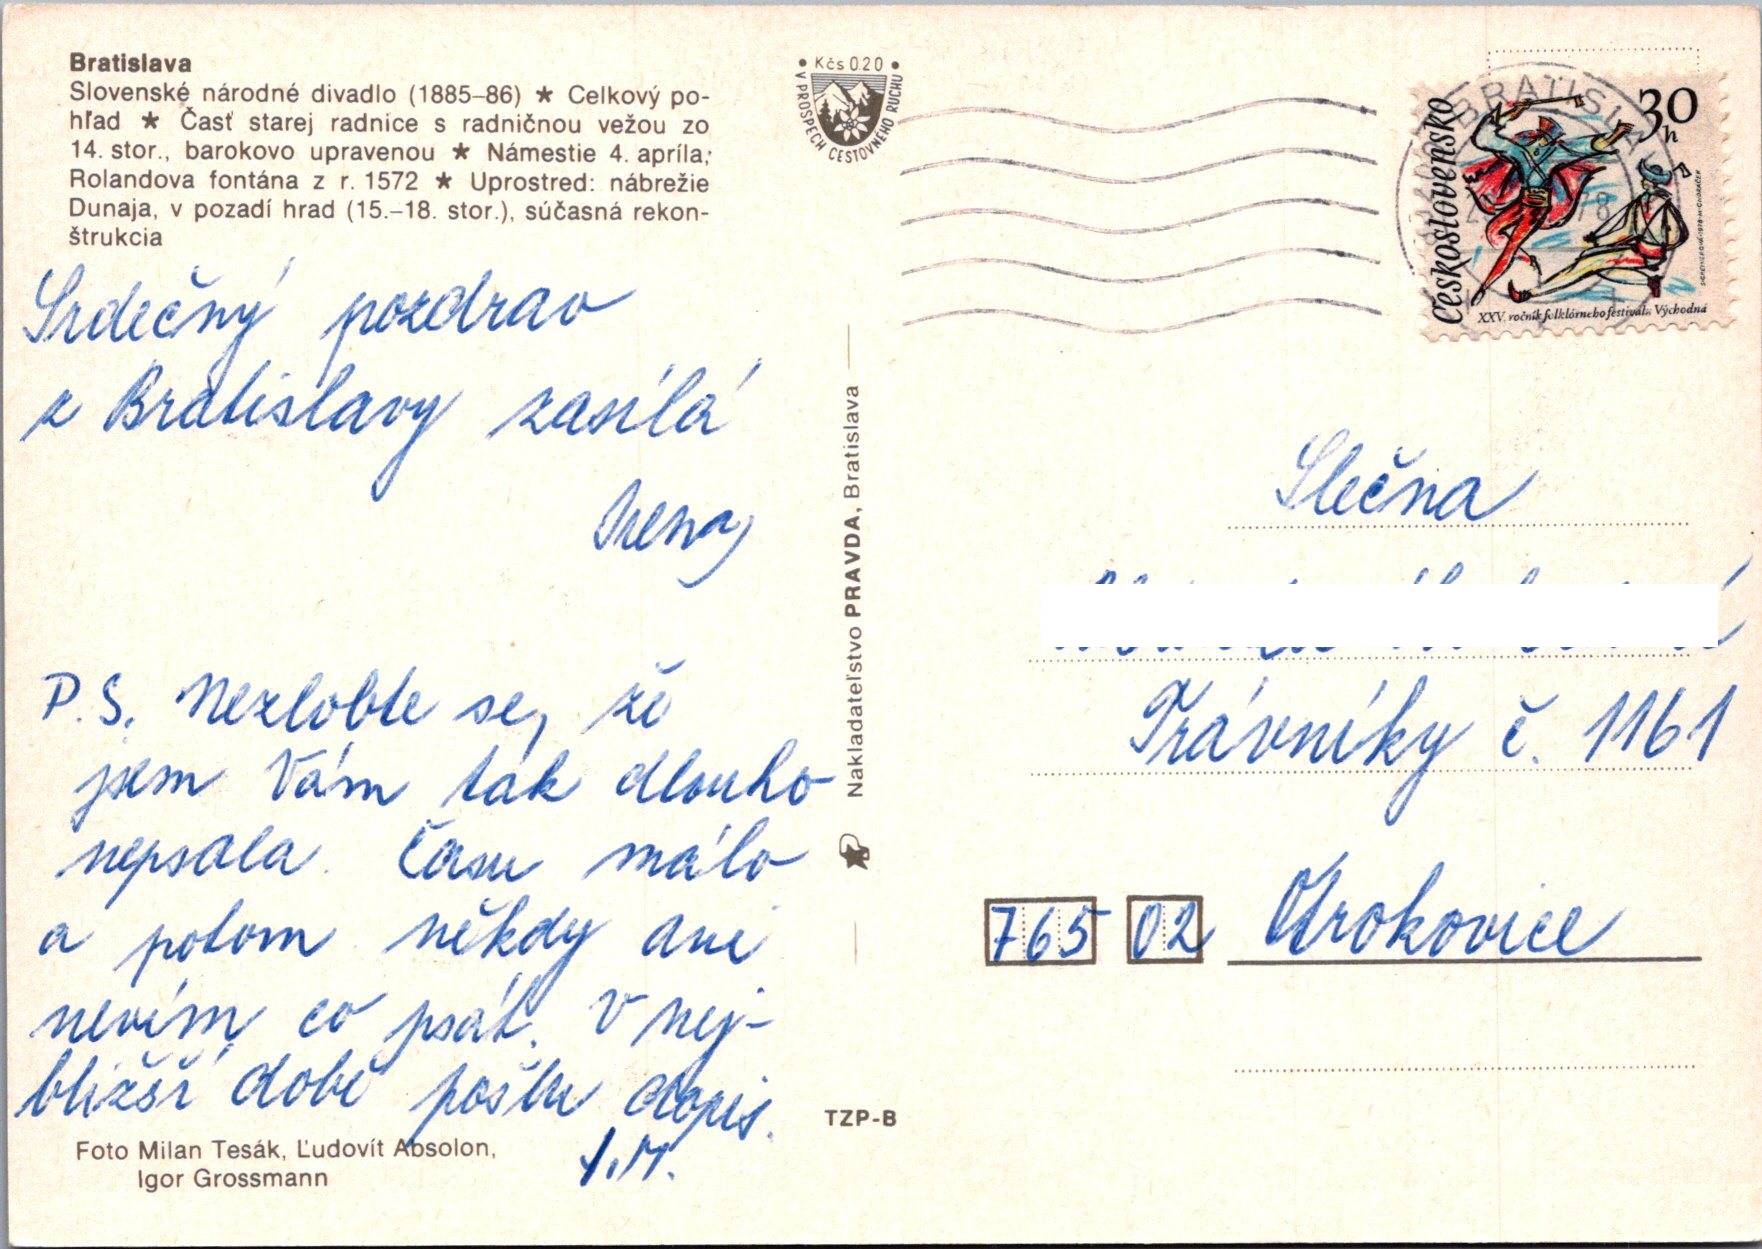 Bratislava
Slovenské národné divadlo (1885–86) ★ Celkový po-
hľad ★ Časť starej radnice s radničnou vežou zo
14. stor., barokovo upravenou ★ Námestie 4. apríla;
Rolandova fontána z r. 1572 ★ Uprostred: nábrežie
Dunaja, v pozadí hrad (15.–18. stor.), súčasná rekon-
štrukcia
Srdečný pozdrav
z Bratislavy zasílá
Irena
P.S. Nezlobte se, že
jsem Vám tak dlouho
nepsala. Času málo
a potom někdy ani
nevím co psát. V nej-
bližší době pošlu dopis.
I.M.
Foto Milan Tesák, Ľudovít Absolon,
Igor Grossmann
Kčs 0.20
V PROSPECH CESTOVNÉHO RUCHU
Nakladateľstvo PRAVDA, Bratislava
TZP-B
BRATISLAVA
78
Československo
30
h
XXV. ročník folklórneho festivalu Východná
Slečna
Trávníky č. 1161
765 02 Otrokovice